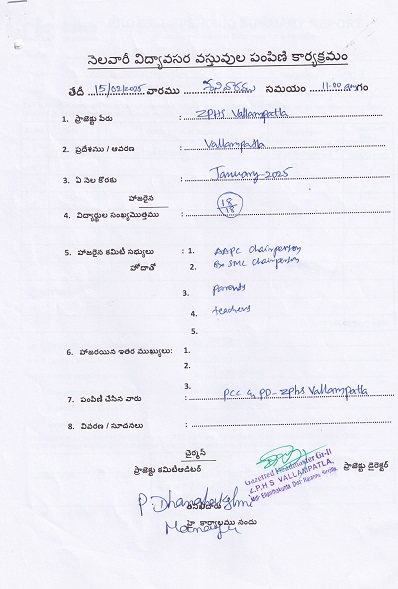 నెలవారీ విద్యావసర వస్తువుల పంపిణి కార్యక్రమం
తేదీ 15/02/2025 వారము శనివారము సమయం 11:00 గం
1. ప్రాజెక్టు పేరు : ZPHS Vallampatla
2. ప్రదేశము / ఆవరణ : Vallampatla
3. ఏ నెల కొరకు : January-2025
హాజరైన
4. విద్యార్థుల సంఖ్యమొత్తము : 18/18
5. హాజరైన కమిటీ సభ్యులు : 1. AAPC Chairperson
హోదాతో 2. Ex SMC Chairperson
3. parents
4. teachers
5.
6. హాజరయిన ఇతర ముఖ్యులు: 1.
2.
3.
7. పంపిణి చేసిన వారు : PCC & PD- ZPHS Vallampatla
8. వివరణ / సూచనలు :
చైర్మన్
ప్రాజెక్టు కమిటీఆడిటర్ ప్రాజెక్టు డైరెక్టర్
Gazetted Headmaster Gr-II
Z.P.H.S VALLAMPATLA,
P. Dhanalaxmi
కార్యాలయము నందు